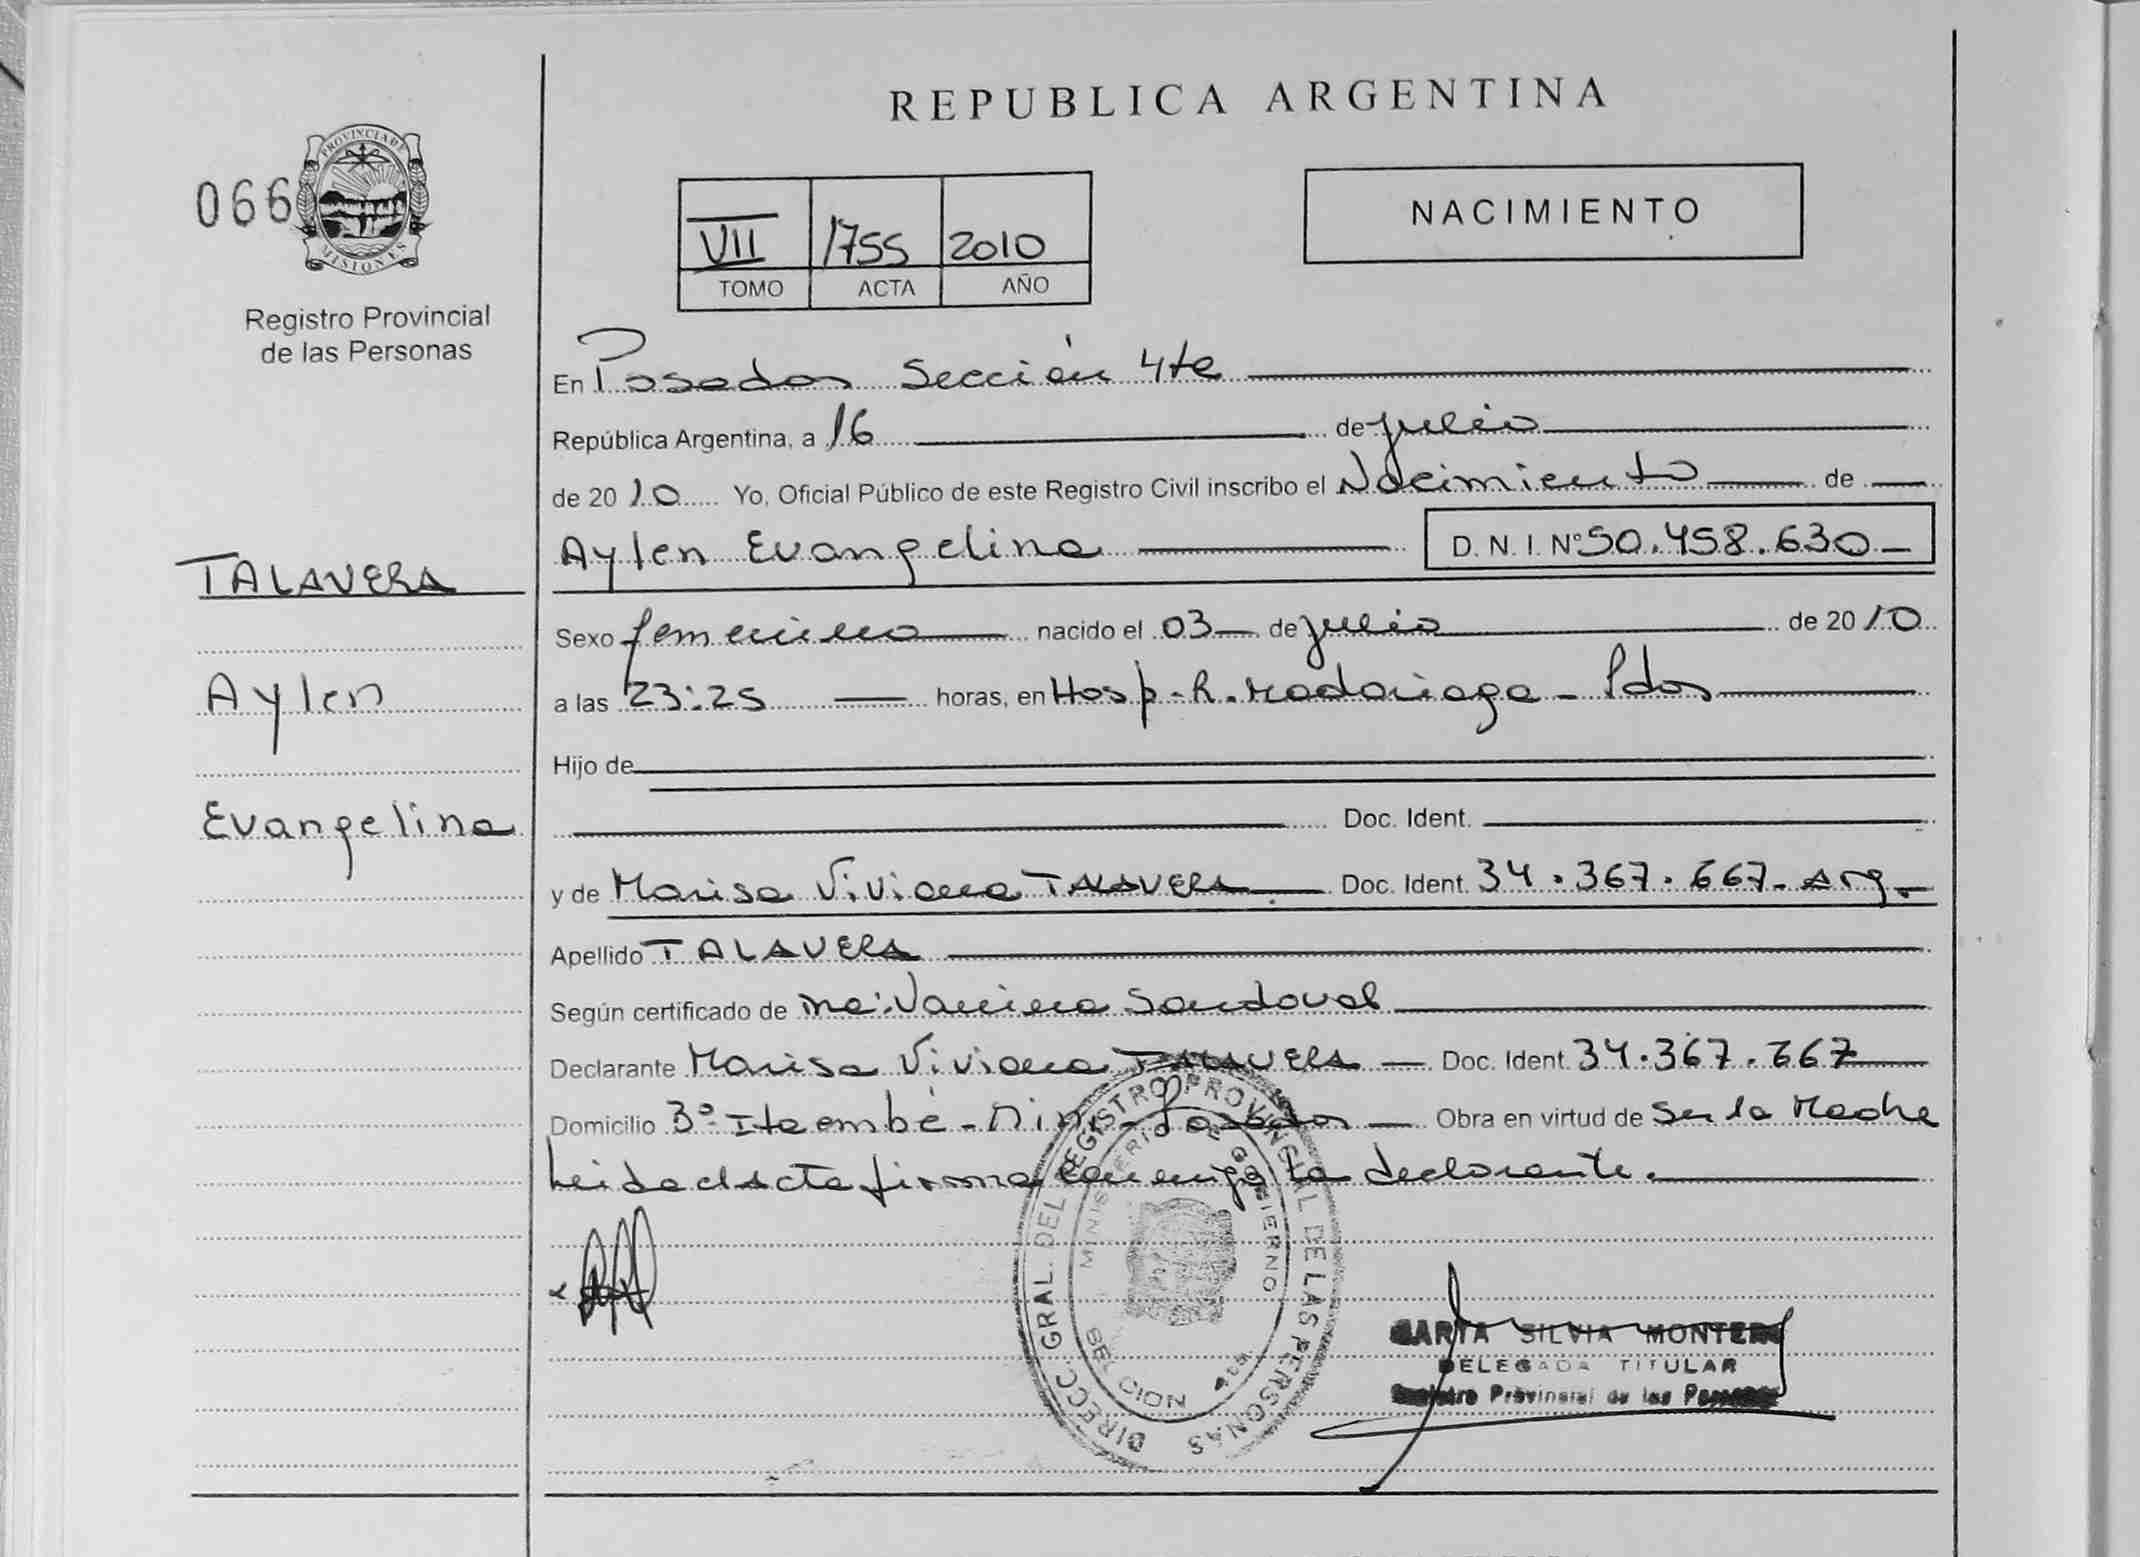 REPUBLICA ARGENTINA
066
PROVINCIA DE MISIONES
Registro Provincial
de las Personas
VII 1755 2010
TOMO ACTA AÑO
NACIMIENTO
En Posadas Sección 4ta
República Argentina, a 16 de julio
de 2010 Yo, Oficial Público de este Registro Civil inscribo el Nacimiento de
Aylen Evangelina D. N. I. Nº 50.458.630
TALAVERA
Aylen
Evangelina
Sexo femenino nacido el 03 de julio de 2010
a las 23:25 horas, en Hosp. R. Madariaga - Pdas
Hijo de
Doc. Ident.
y de Marisa Viviana TALAVERA Doc. Ident. 34.367.667 - Arg.
Apellido TALAVERA
Según certificado de Vanina Sandoval
Declarante Marisa Viviana TALAVERA Doc. Ident. 34.367.667
Domicilio Bº Itaembé - Miní - Posadas Obra en virtud de Ser la Madre
Leida el acta firma conmigo la declarante.
DIRECC. GRAL. DEL REGISTRO PROVINCIAL DE LAS PERSONAS
MINISTERIO DE GOBIERNO
MARTA SILVIA MONTERO
DELEGADA TITULAR
Registro Provincial de las Personas